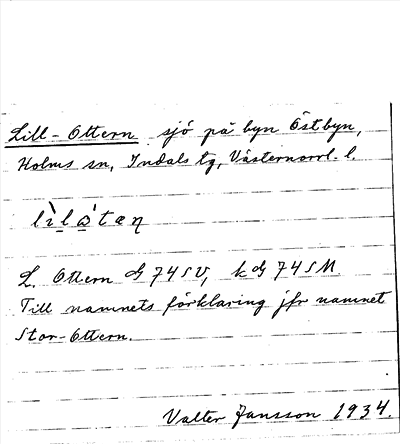 Lill-Ottern sjö på byn Östbyn,
Holms sn, Indals tg, Västernorrl. l.
L. Ottern G 74 SV, kG 74 SM
Till namnets förklaring jfr namnet
Stor-Ottern.
Valter Jansson 1934.